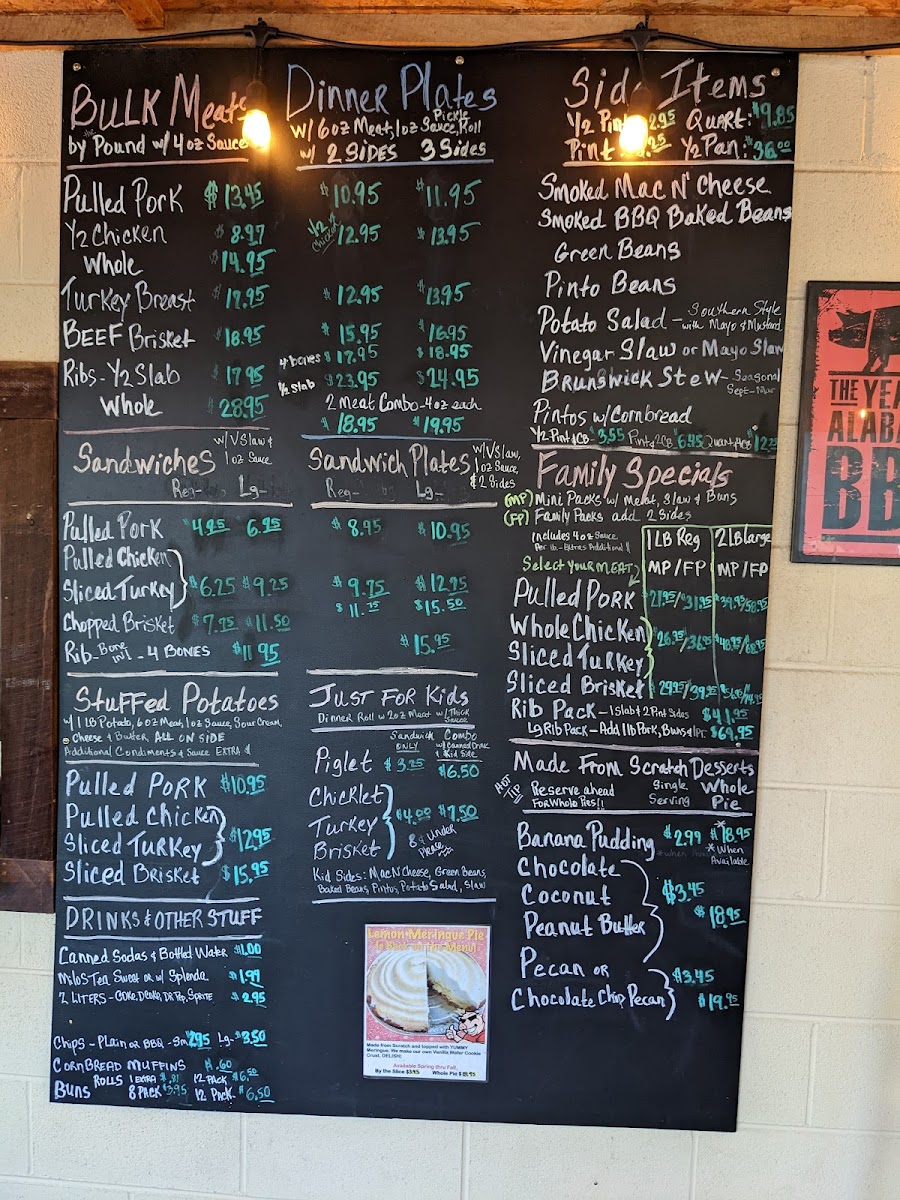 BULK Meats
by the Pound w/ 4 oz Sauce
Pulled Pork $13.45
1/2 Chicken $8.97
Whole $14.95
Turkey Breast $17.95
BEEF Brisket $18.95
Ribs - 1/2 Slab $17.95
Whole $28.95
Dinner Plates
w/ 6 oz Meat, 1 oz Sauce, Pickle, Roll
w/ 2 SIDES 3 Sides
$10.95 $11.95
1/2 Chicken $12.95 $13.95
$12.95 $13.95
$15.95 $16.95
4 bones $17.95 $18.95
1/2 slab $23.95 $24.95
2 Meat Combo - 4 oz each
$18.95 $19.95
Side Items
1/2 Pint QUART: $9.85
Pint 1/2 Pan: $36.00
Smoked Mac N' Cheese
Smoked BBQ Baked Beans
Green Beans
Pinto Beans
Potato Salad - Southern Style
with Mayo & Mustard
Vinegar Slaw or Mayo Slaw
Brunswick Stew - Seasonal
Sept-Mar
Pintos w/ Cornbread
1/2 Pint & CB $3.55 Pint & 2CB $6.45
Sandwiches w/ V Slaw &
1 oz Sauce
Reg- Lg-
Pulled Pork $4.95 6.95
Pulled Chicken
Sliced Turkey $6.25 $9.25
Chopped Brisket $7.95 $11.50
Rib - Bone in! - 4 BONES $11.95
Sandwich Plates w/ V Slaw,
1 oz Sauce,
& 2 Sides
Reg- Lg-
$8.95 $10.95
$12.95
$15.50
$15.95
Family Specials
(MP) Mini Packs w/ Meat, Slaw & Buns
(FP) Family Packs add 2 Sides
includes 4 oz Sauce
Per lb - Extras Additional $
1 LB Reg 2 LB Large
Select your MEAT MP/FP MP/FP
Pulled Pork $21.95/$31.95
Whole Chicken
Sliced Turkey $26.95/$36.95
Sliced Brisket $29.95/$39.95
Rib Pack - 1 Slab & 2 Pint Sides $41.95
Lg Rib Pack - Add 1 lb Pork, Buns & 1 Pt. $69.95
Stuffed Potatoes
w/ 1 LB Potato, 6 oz Meat, 1 oz Sauce, Sour Cream,
Cheese & Butter ALL ON SIDE
Additional Condiments & Sauce EXTRA $
Pulled Pork $10.95
Pulled Chicken
Sliced Turkey $12.95
Sliced Brisket $15.95
Just For Kids
Dinner Roll w/ 2 oz Meat w/ Thick
Sauce
Sandwich Combo
ONLY w/ Canned Drink
& Kid Side
Piglet $3.25 $6.50
Chicklet
Turkey $4.00 $7.50
Brisket 8 & Under
Please
Kid Sides: Mac N Cheese, Green Beans,
Baked Beans, Pintos, Potato Salad, Slaw
Made From Scratch Desserts
HOT TIP Reserve ahead
FOR Whole Pies!!
Single
Serving
Whole
Pie
Banana Pudding $2.99 *$18.95
*When
Available
Chocolate
Coconut $3.45 $18.95
Peanut Butter
Pecan or $3.45
Chocolate Chip Pecan $19.95
DRINKS & OTHER STUFF
Canned Sodas & Bottled Water $1.00
Milo's Tea Sweet or w/ Splenda $1.99
2 LITERS - COKE, D COKE, DR Pep, SPRITE $2.95
Chips - Plain or BBQ - Sm $2.95 Lg- $3.50
CORNBREAD MUFFINS $.60
ROLLS 1 EXTRA 12 PACK $6.50
Buns 8 PACK $3.95 12 PACK $6.50
Lemon Meringue Pie
is Back on the Menu!
Made from Scratch and topped with YUMMY
Meringue. We make our own Vanilla Wafer Cookie
Crust, DELISH!
Available Spring thru Fall.
By the Slice $3.95 Whole Pie $18.95
THE YEA
ALABA
BB